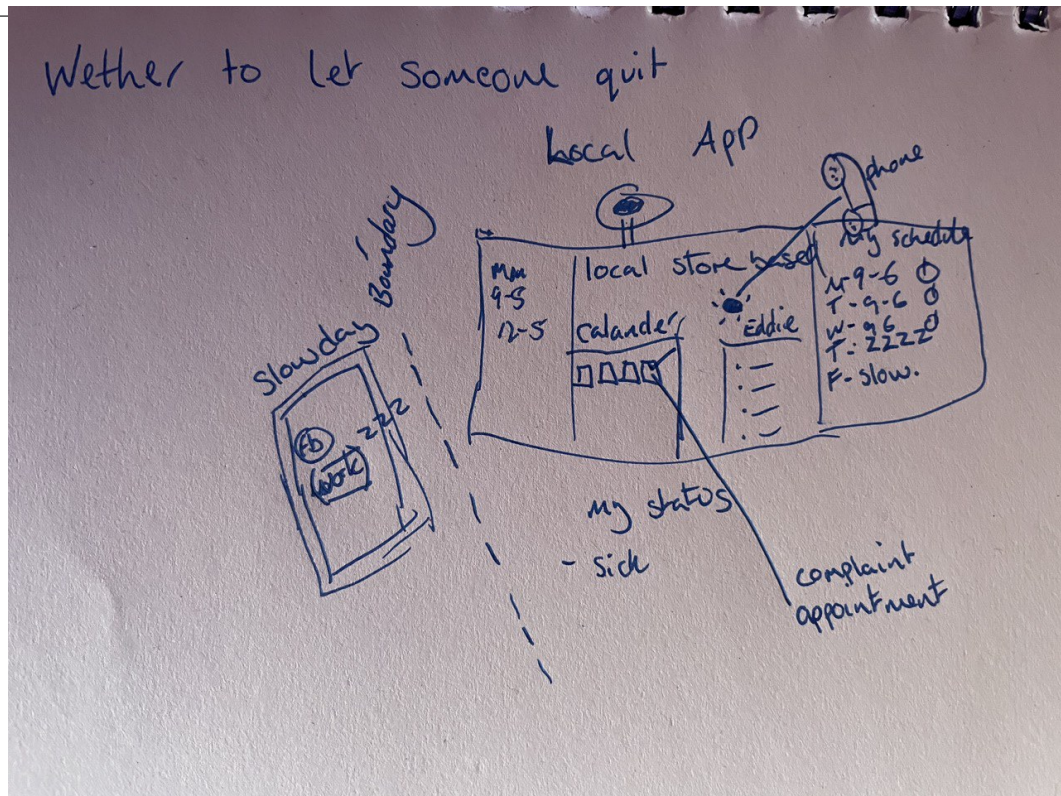 Wether to let someone quit
Local App
phone
Boundary
Slow day
Fb
work
zzz
MM
9-5
12-5
local store based
Calander
Eddie
My schedule
M-9-6
T-9-6
W-96
T: ZZZZ
F-slow.
My status
- sick
complaint
appointment